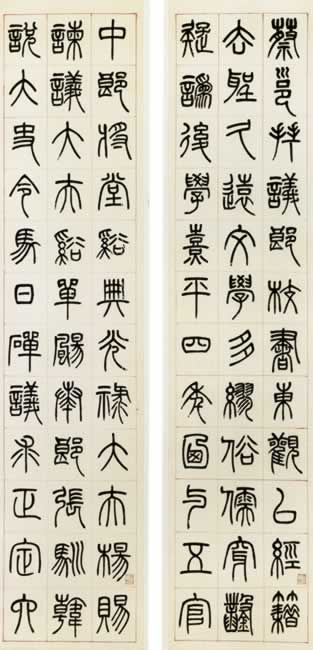 蔡邕拜議郎校書東觀以經籍
去聖久遠文學多繆俗儒穿鑿
疑誤後學熹平四年迺与五官
中郎將堂谿典光祿大夫楊賜
諫議大夫谿單颺奉郎張馴韓
說大史令馬日磾議求正定六